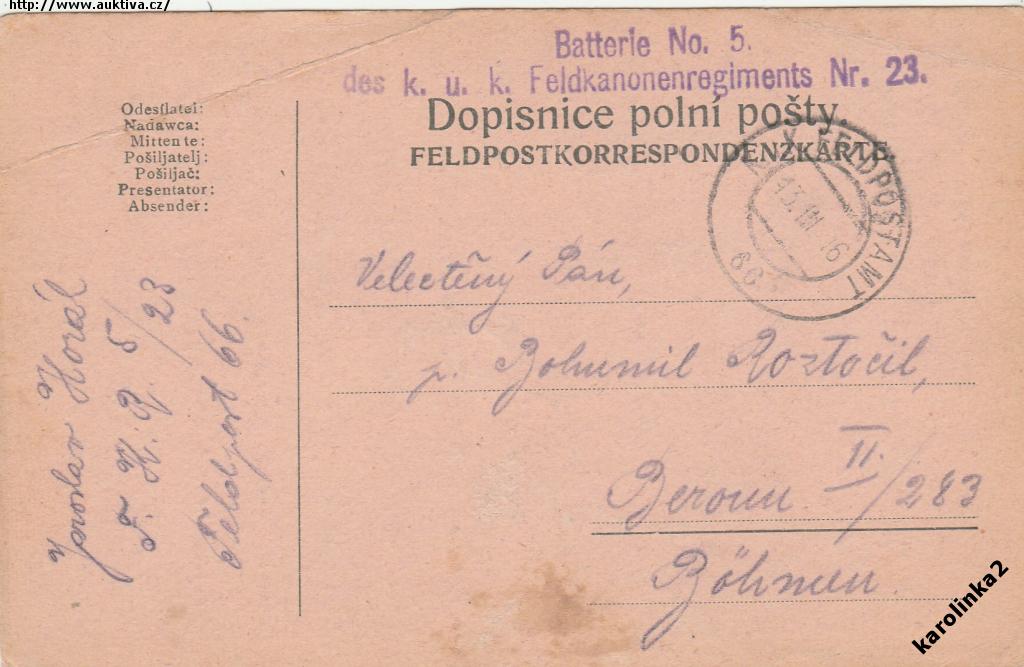 http://www.auktiva.cz/
Batterie No. 5.
des k. u. k. Feldkanonenregiments Nr. 23.
Dopisnice polní pošty.
FELDPOSTKORRESPONDENZKARTE
Odesílatel:
Nadawca:
Mittente:
Pošiljatelj:
Pošiljač:
Presentator:
Absender:
K.u.K. FELDPOSTAMT
66
Velectěný Pán,
p. Bohumil Roztočil,
Beroun II./283
Böhmen.
Jaroslav Horál
F. K. R. 5/23
Feldpost 66.
karolinka2